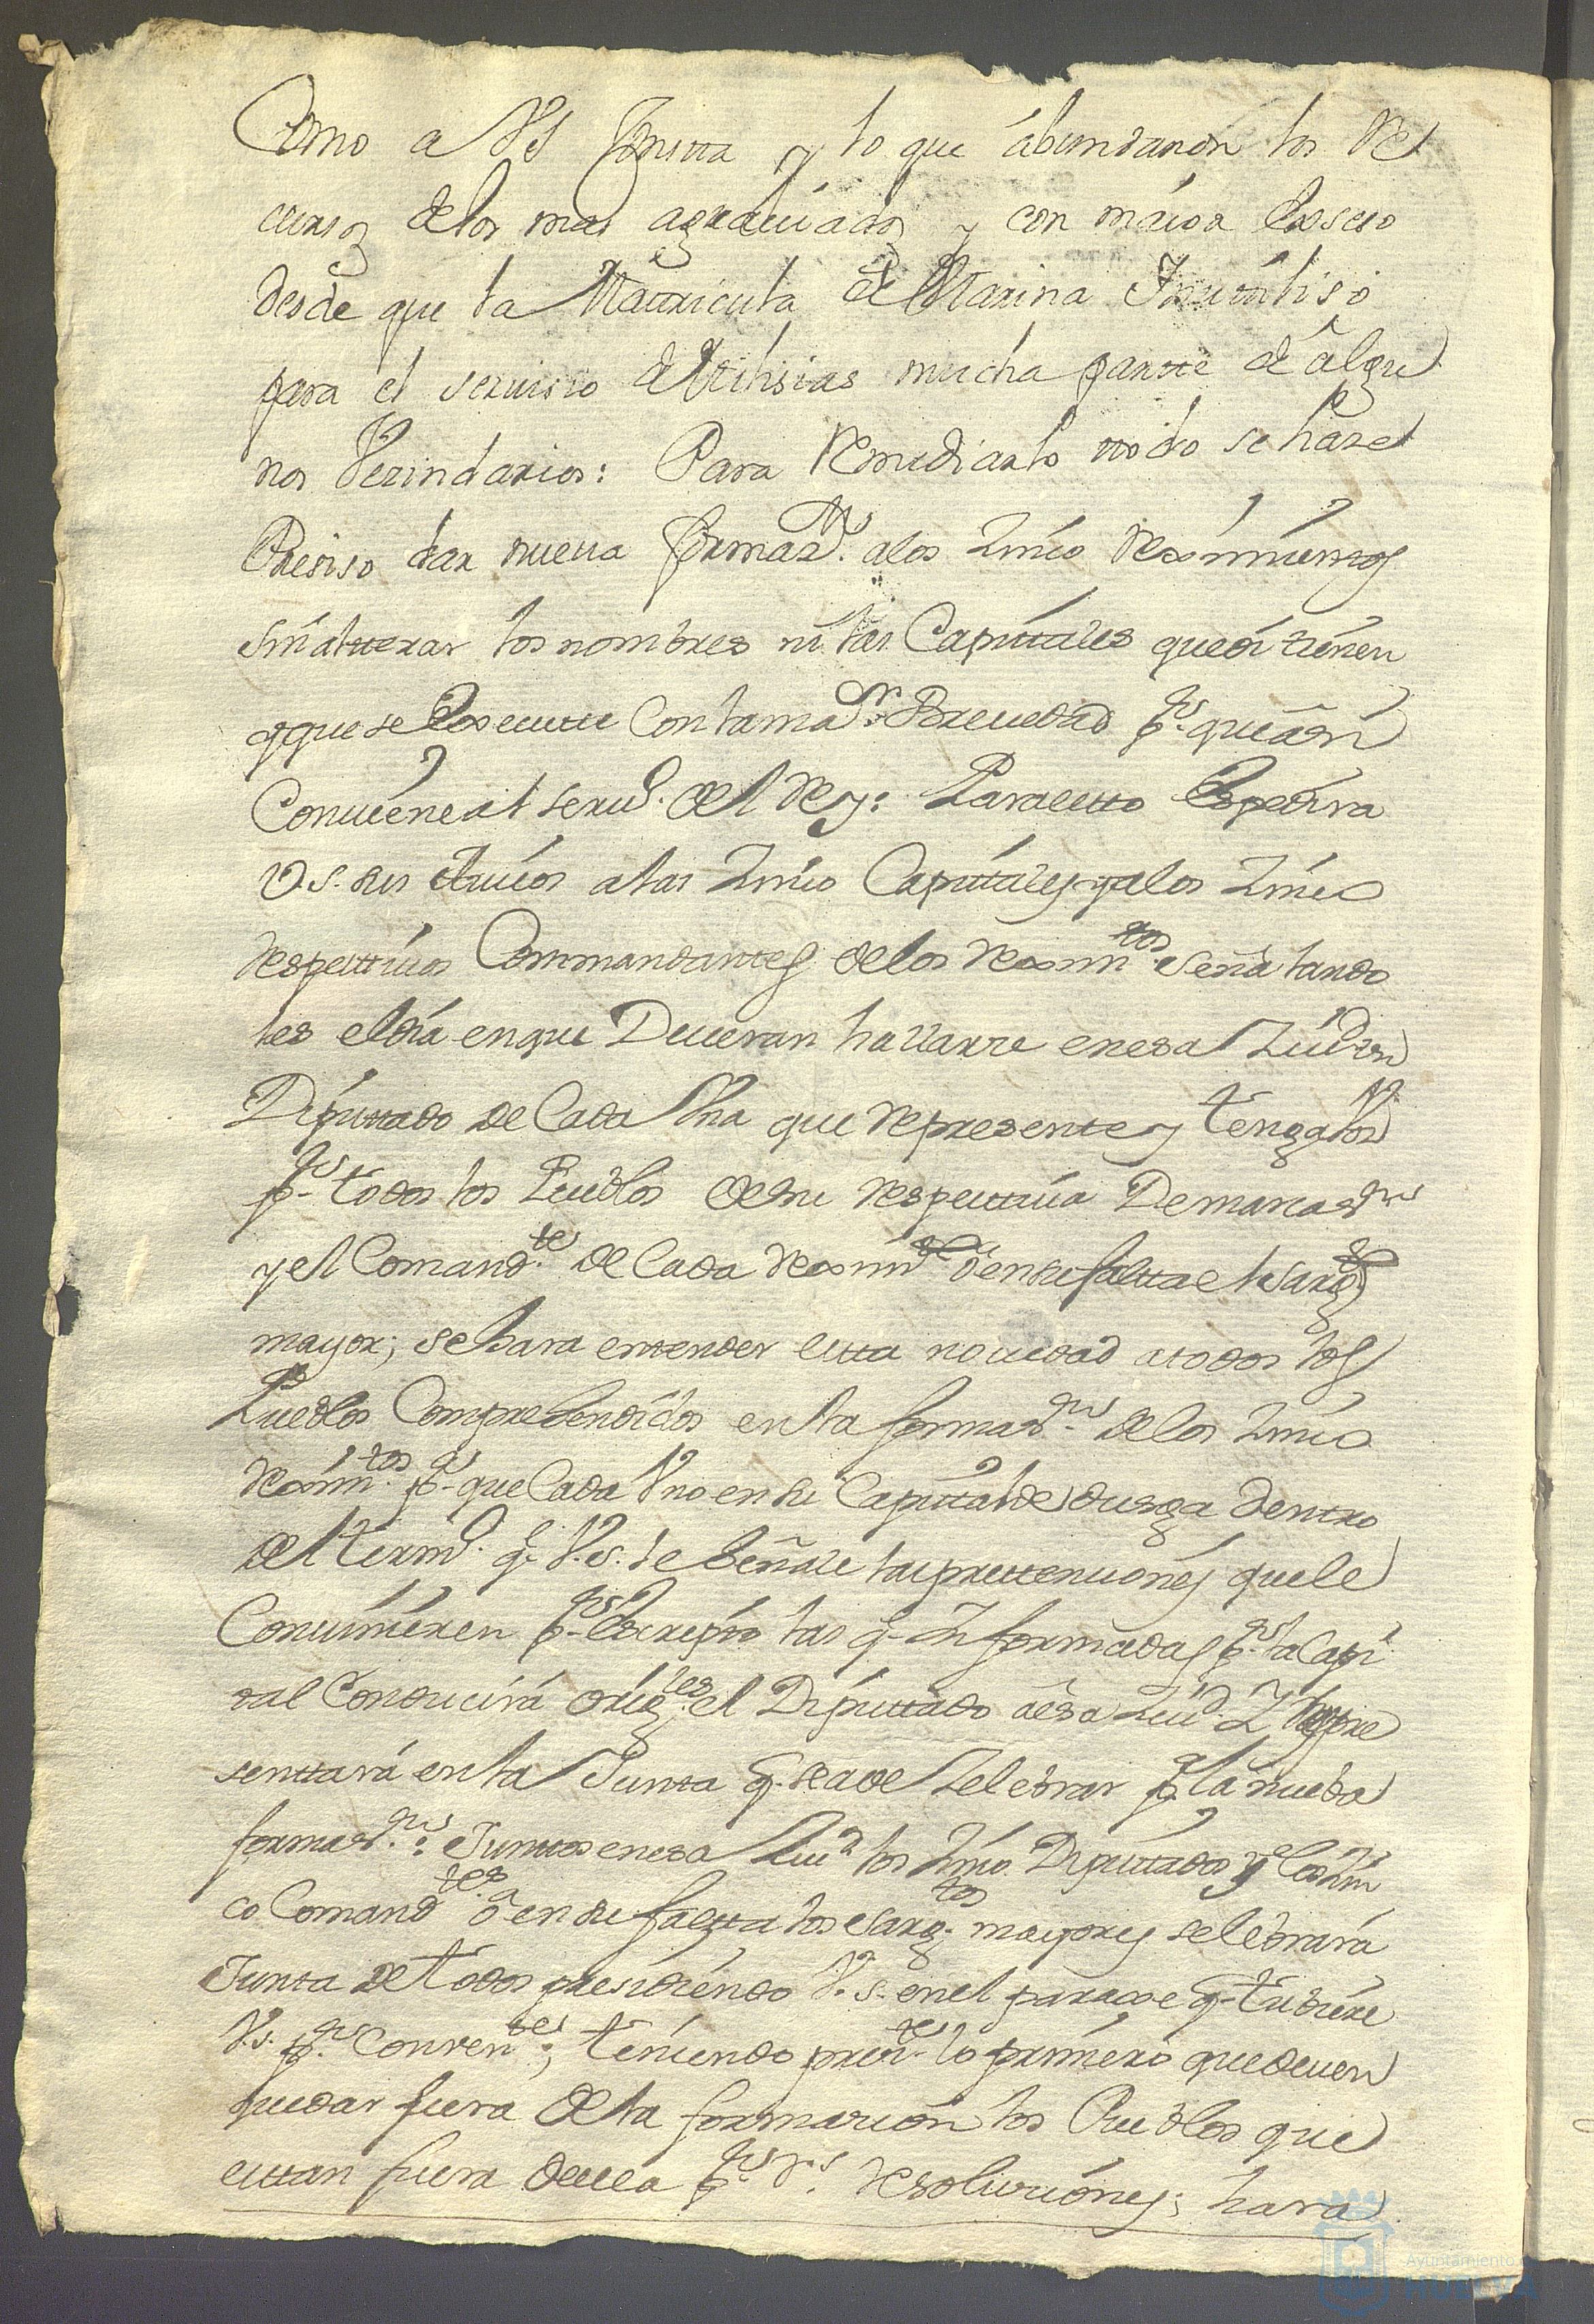 Como a VS Consta y lo que abundaron los Re
cursos delos mas agraviados y con maior Exseso
desde que la Matricula de Marina Inutiliso
para el servisio de Milisias mucha parte de algu
nos Vezindarios: Para Remediarlo todo se haze
Presiso dar nueva formaz.on alos Zinco Reximientos
sin alterar los nombres ni las Capitales que oi tienen
y que se Execute con la ma.or Brevedad p.r que asi
Conviene al servo. del Rey: Para esto Expedira
V.S. sus Avisos alas Zinco Capitales y alos Zinco
Respectivos Commandantes delos Reximtos señalando
les el dia en que Deveran hallarse en esa Ziud. un
Diputado de Cada Una que represente y tenga
p.r todos los Pueblos de su respectiva Demarcaz.on
y el Comand.te de Cada Reximto o en su falta el Sargto
mayor; se hara entender esta novedad a todos los
Pueblos Comprehendidos en la formaz.on delos Zinco
Reximtos p.a que Cada Uno en su Capital deduzga dentro
del termo. q.e V.S. le Señale las pretenciones que le
Convinieren p.r Escripto las q.e Informadas p.r la Capi
tal Conducirá orig.les el Diputado a esa Ziud. Y Repre
sentará en la Junta q.e se a de Zelebrar p.a la nueba
formaz.on: Juntos en esa Ziud los Zinco Diputados y los Zin
co Comand.tes o en su falta los Sarg.tos mayores selebrará
Junta de todos presidiendo V.S. en el paraxe q.e tubiere
V.S. p.r Conven.te; teniendo pres.te lo primero que deven
quedar fuera dela formacion los Pueblos que
estan fuera de ella p.r R.s resoluciones; hara
Ayuntamiento de
HUELVA